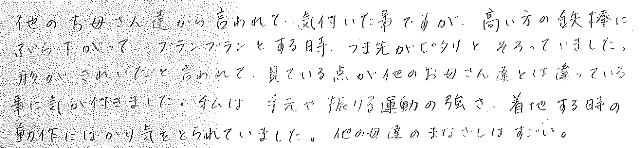 他のお母さん達から言われて、気付いた事ですが、高い方の鉄棒に
ぶら下がって、ブランブランとする時、つま先がピタリとそろっていました。
がきれいだと言われて、見ている点が他のお母さん達とは違っている
事に気が付きました。私は手元や振りる運動の強さ、着地する時の
動作にばかり気をとられていました。他の母達のまなざしはすごい。